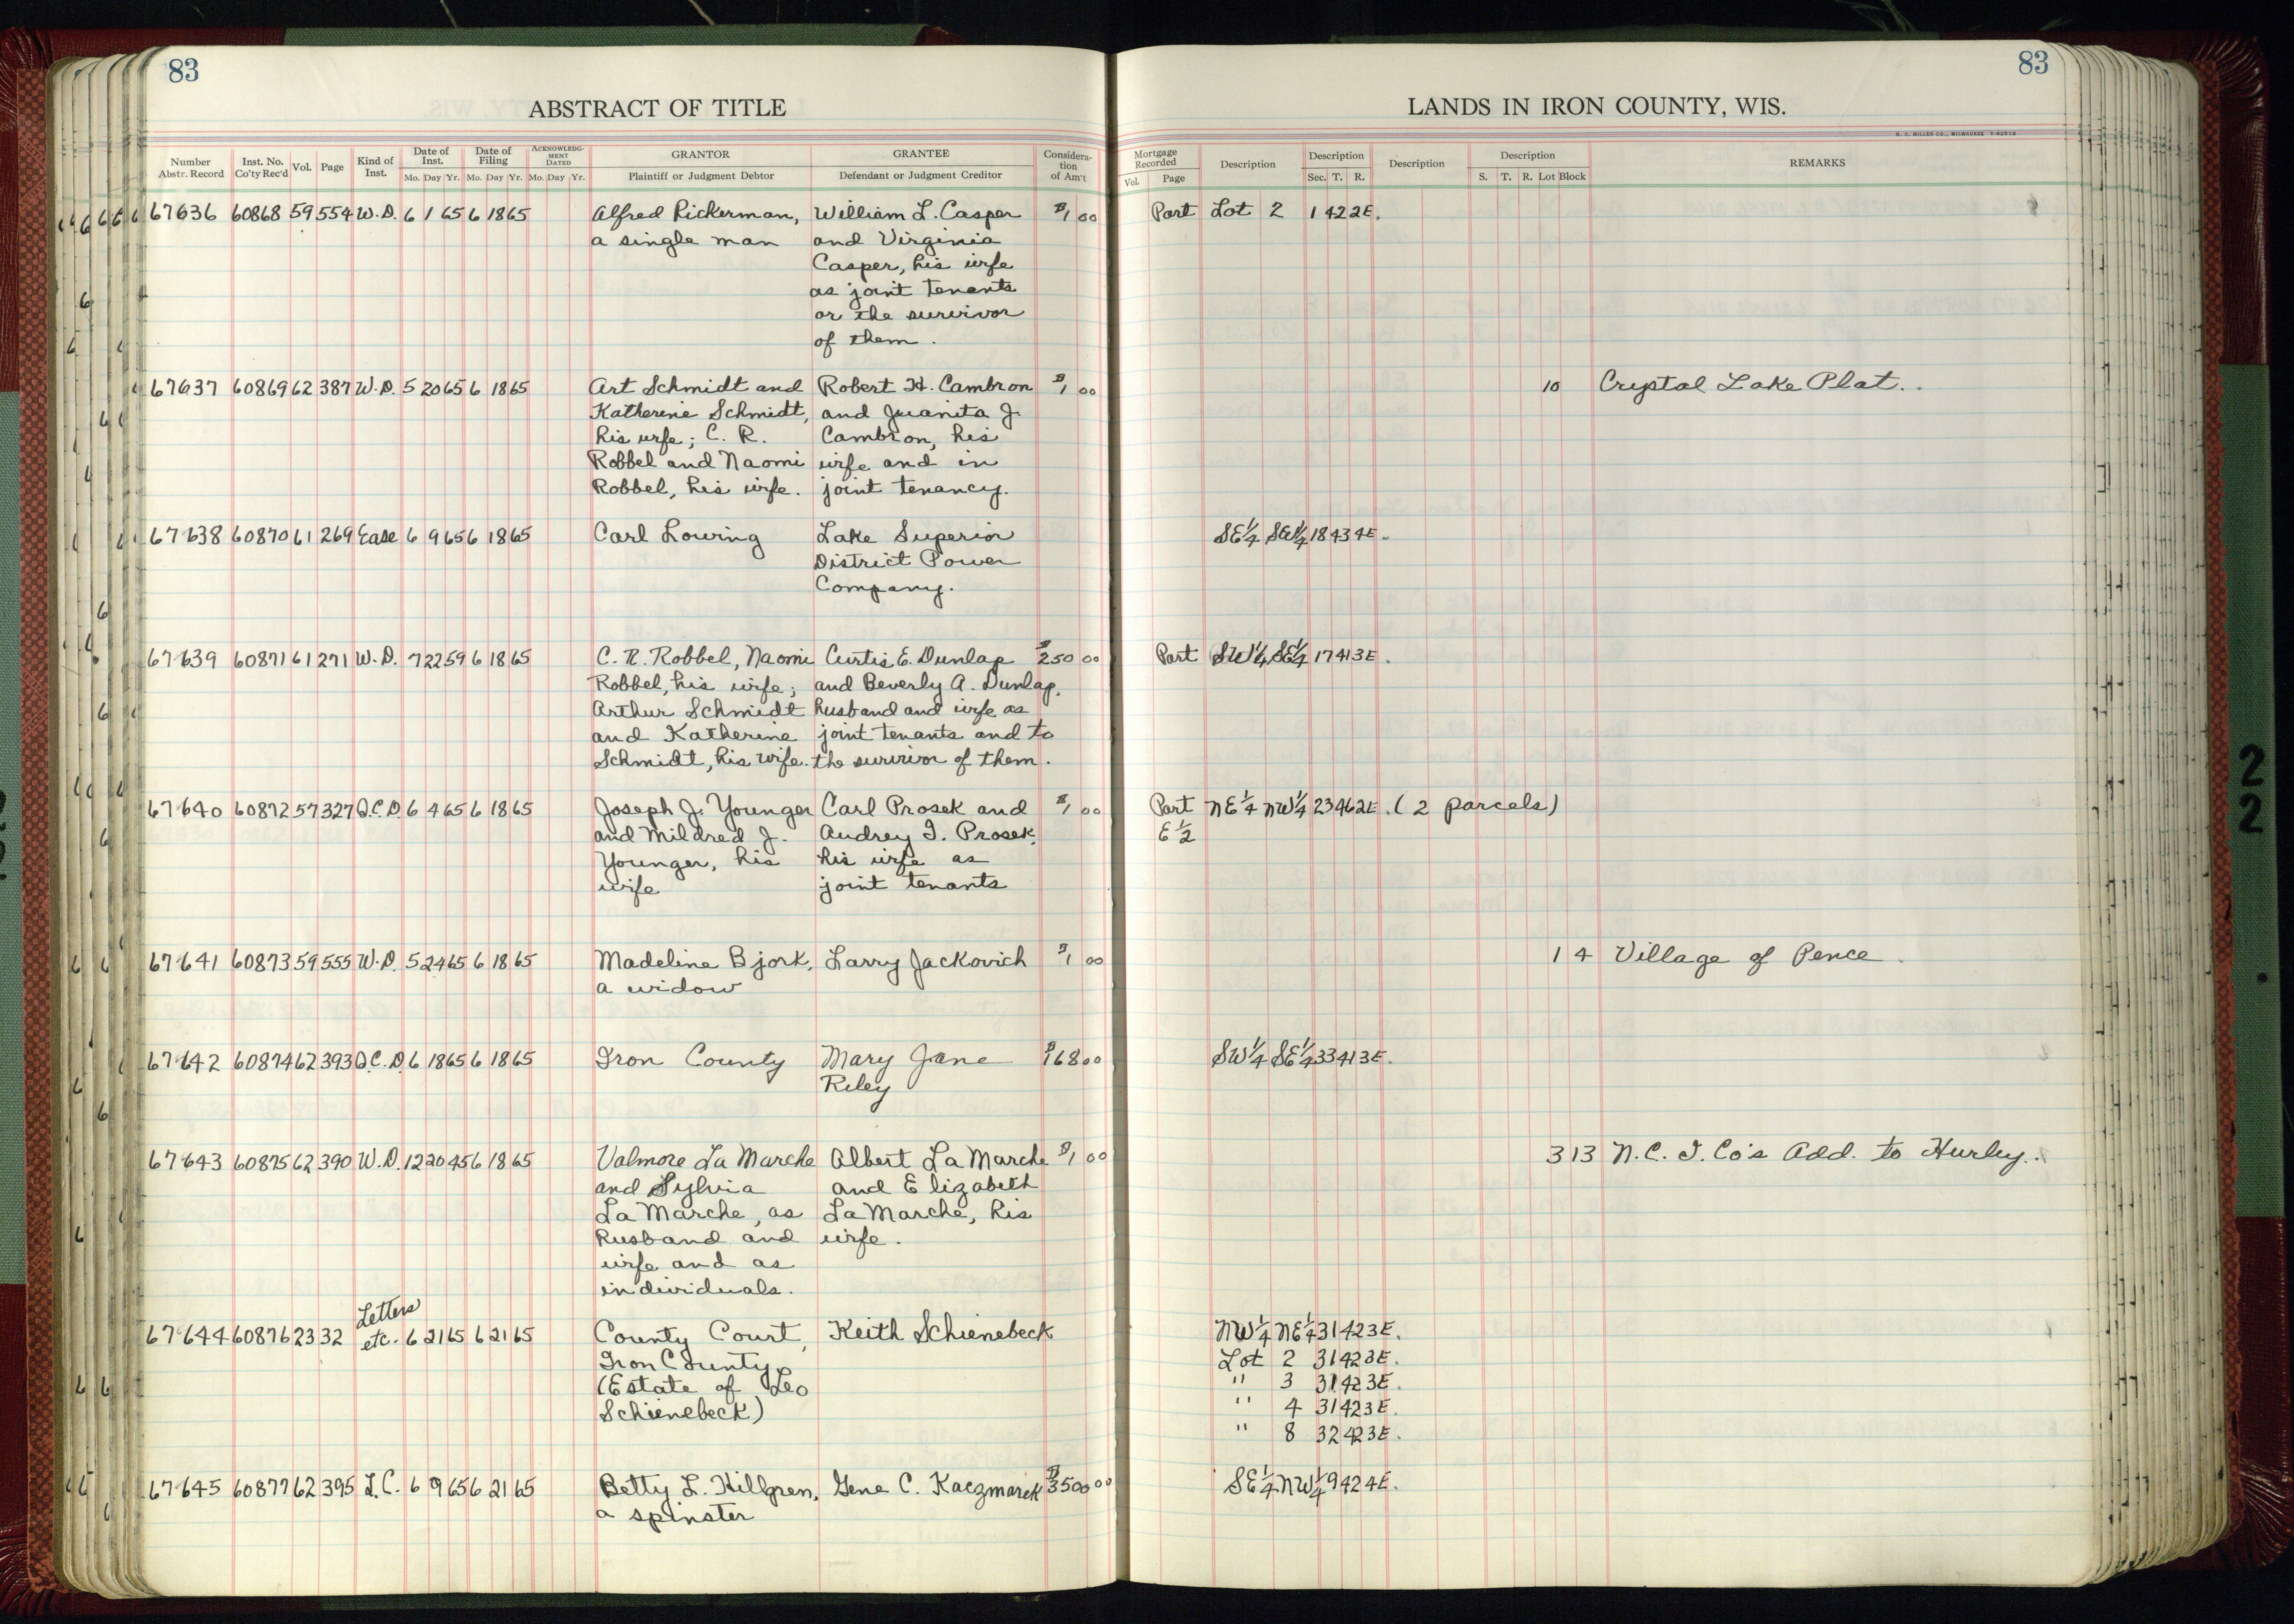 83
83
ABSTRACT OF TITLE
LANDS IN IRON COUNTY, WIS.
H. C. MILLER CO., MILWAUKEE
Number Abstr. Record
Inst. No. Co'ty Rec'd
Vol.
Page
Kind of Inst.
Date of Inst.
Mo. Day Yr.
Date of Filing
Mo. Day Yr.
ACKNOWLEDGMENT DATED
Mo. Day Yr.
GRANTOR
Plaintiff or Judgment Debtor
GRANTEE
Defendant or Judgment Creditor
Consideration of Am't
Mortgage Recorded
Vol. Page
Description
Description
Sec. T. R.
Description
Description
S. T. R. Lot Block
REMARKS
67636 60868 59 554 W.D. 6 1 65 6 18 65 Alfred Rickerman, William L. Casper $1 00 Part Lot 2 1 42 2E.
a single man and Virginia
Casper, his wife
as joint tenants
or the survivor
of them.
67637 60869 62 387 W.D. 5 20 65 6 18 65 Art Schmidt and Robert H. Cambron $1 00 10 Crystal Lake Plat.
Katherine Schmidt, and Juanita J.
his wife; C. R. Cambron, his
Robbel and Naomi wife and in
Robbel, his wife. joint tenancy.
67638 60870 61 269 Ease 6 9 65 6 18 65 Carl Lowing Lake Superior SE¼ SW¼ 18 43 4E.
District Power
Company.
67639 60871 61 271 W.D. 7 22 59 6 18 65 C. R. Robbel, Naomi Curtis E. Dunlap $250 00 Part SW¼ SE¼ 17 41 3E.
Robbel, his wife; and Beverly A. Dunlap,
Arthur Schmidt husband and wife as
and Katherine joint tenants and to
Schmidt, his wife. the survivor of them.
67640 60872 57 327 Q.C.D. 6 4 65 6 18 65 Joseph J. Younger Carl Prosek and $1 00 Part NE¼ NW¼ 23 46 2E. (2 parcels)
and Mildred J. Audrey I. Prosek, E½
Younger, his his wife as
wife joint tenants
67641 60873 59 555 W.D. 5 24 65 6 18 65 Madeline Bjork, Larry Jackovich $1 00 1 4 Village of Pence
a widow
67642 60874 62 393 Q.C.D. 6 18 65 6 18 65 Iron County Mary Jane $168 00 SW¼ SE¼ 33 41 3E.
Riley
67643 60875 62 390 W.D. 12 20 45 6 18 65 Valmore La Marche Albert La Marche $1 00 3 13 N.C. I. Co's Add. to Hurley.
and Sylvia and Elizabeth
La Marche, as La Marche, his
husband and wife.
wife and as
individuals.
Letters
67644 60876 23 32 etc. 6 21 65 6 21 65 County Court, Keith Schienebeck NW¼ NE¼ 31 42 3E.
Iron County Lot 2 31 42 3E.
(Estate of Leo " 3 31 42 3E.
Schienebeck) " 4 31 42 3E.
" 8 32 42 3E.
67645 60877 62 395 L.C. 6 9 65 6 21 65 Betty L. Hillgren, Gene C. Kaczmarek $3500 00 SE¼ NW¼ 9 42 4E.
a spinster